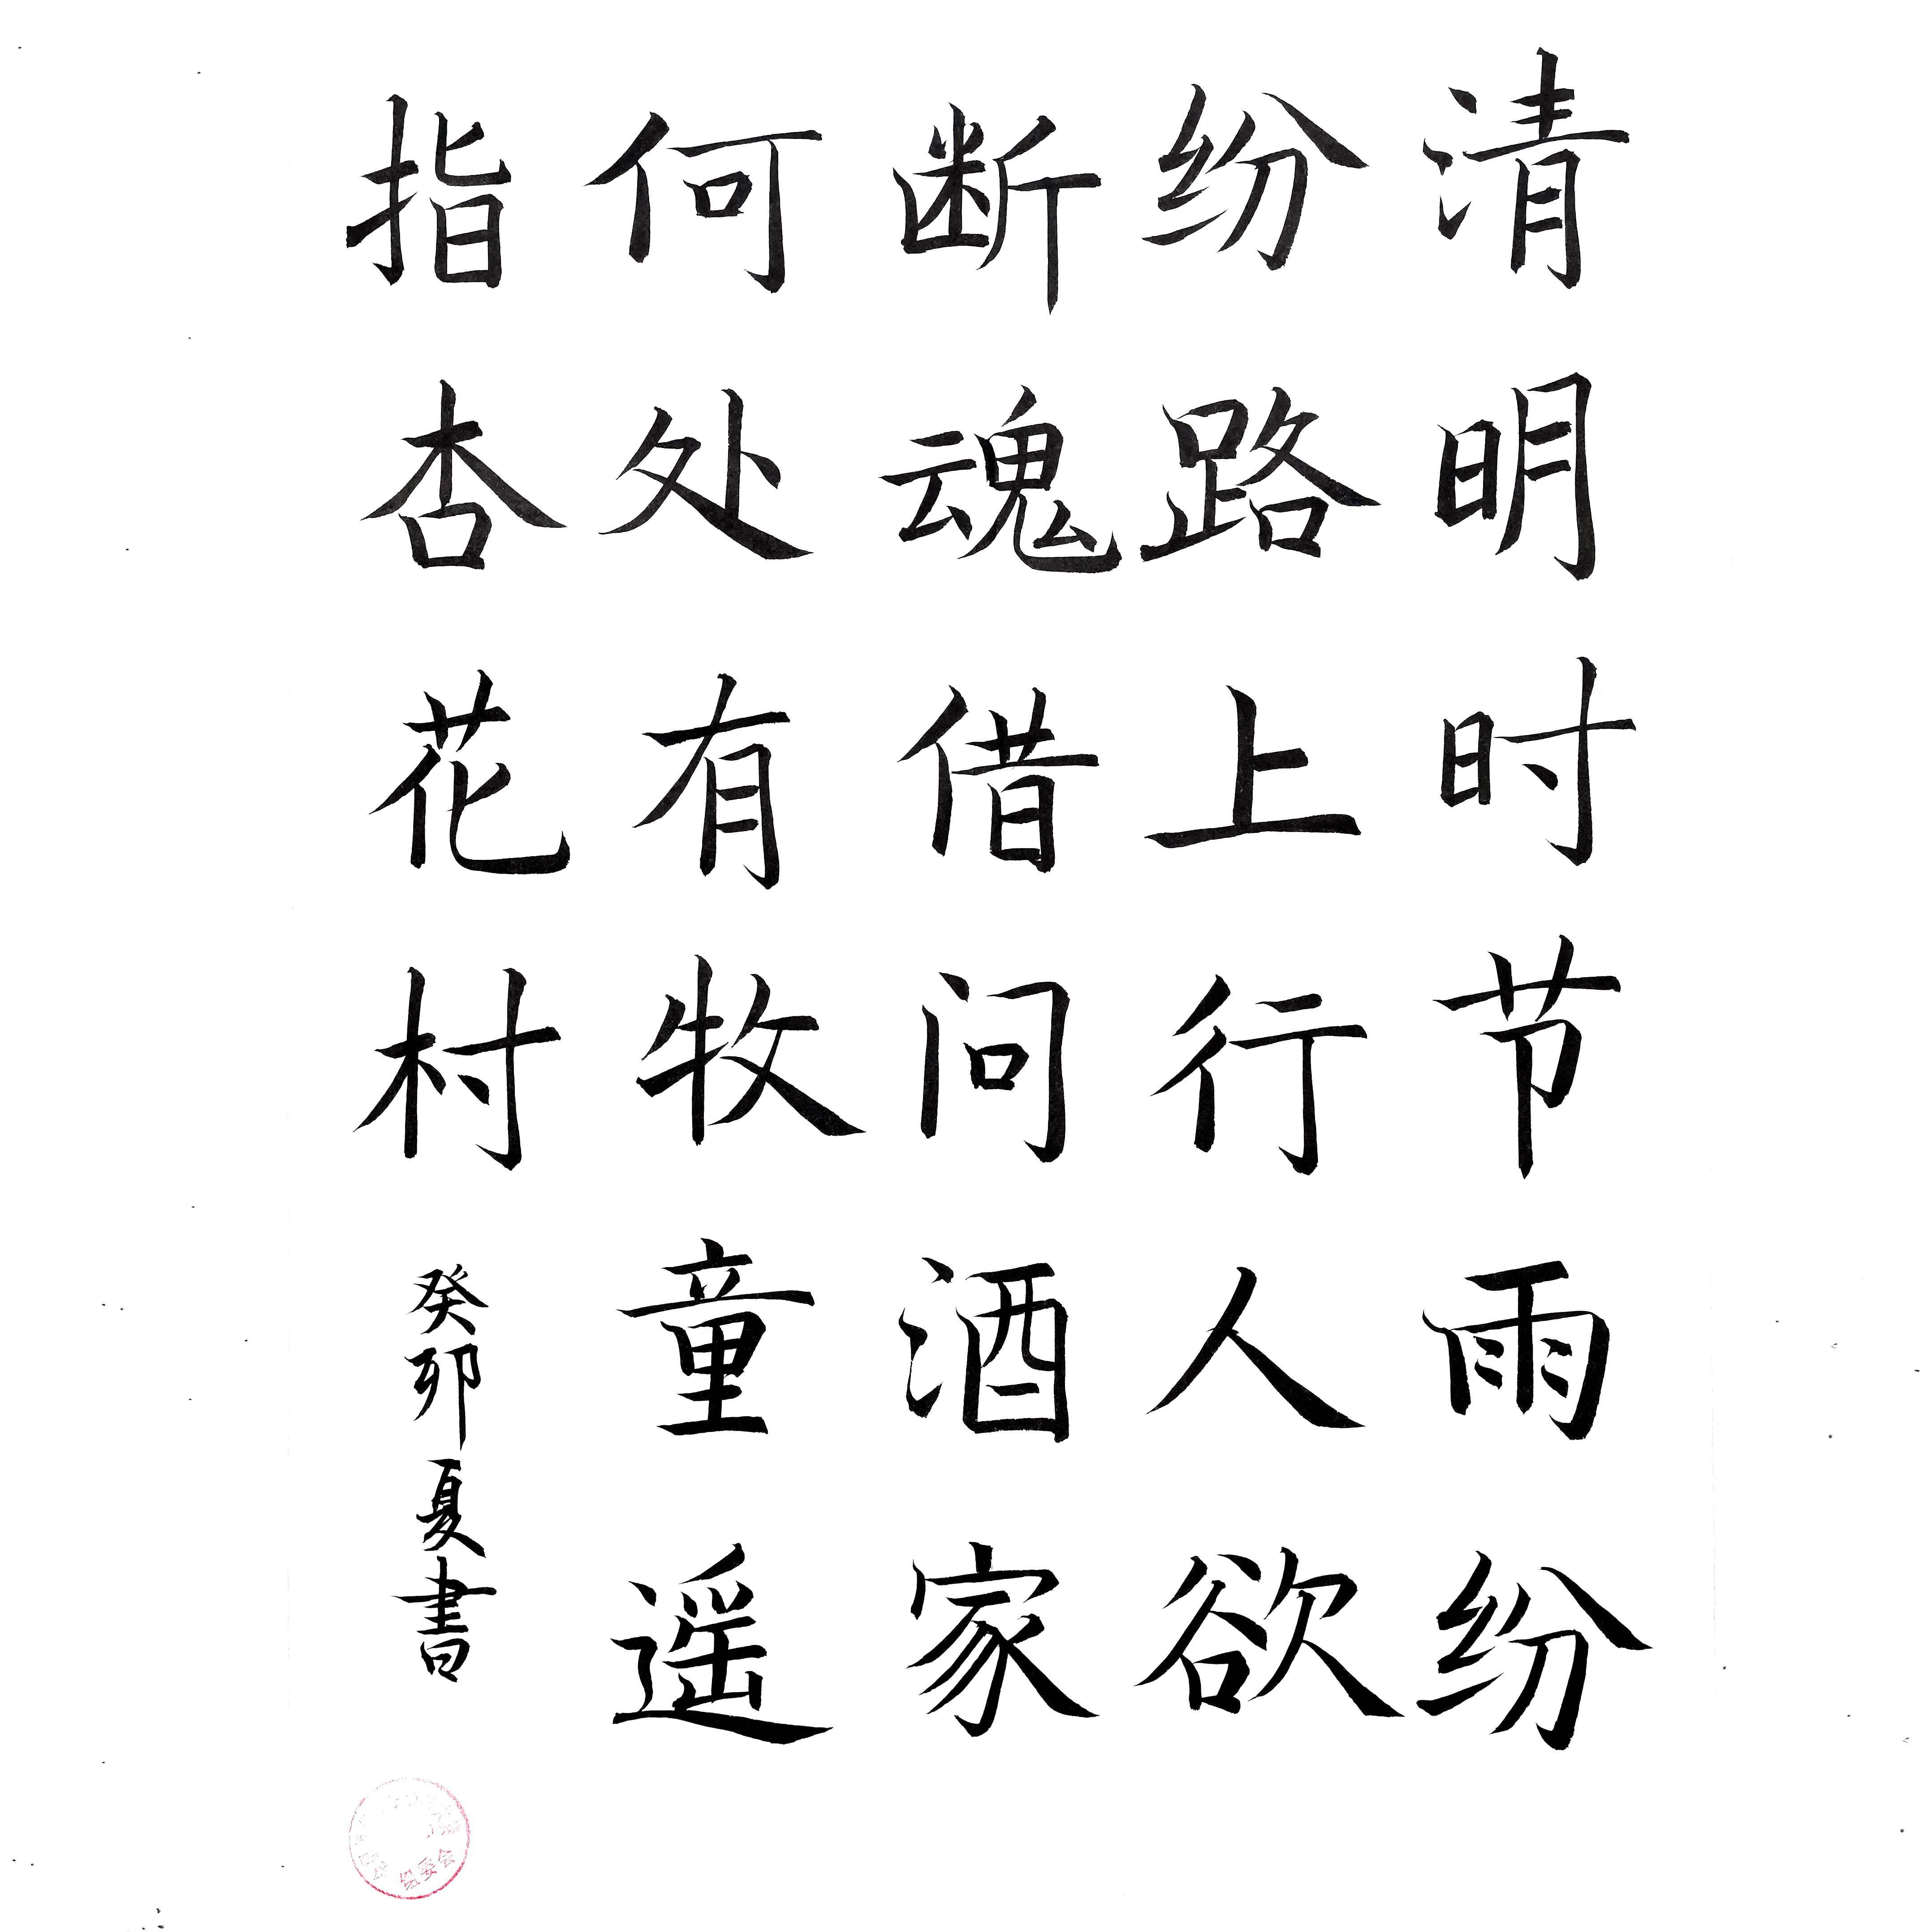 清明时节雨纷
纷路上行人欲
断魂借问酒家
何处有牧童遥
指杏花村
癸卯夏書
组委会